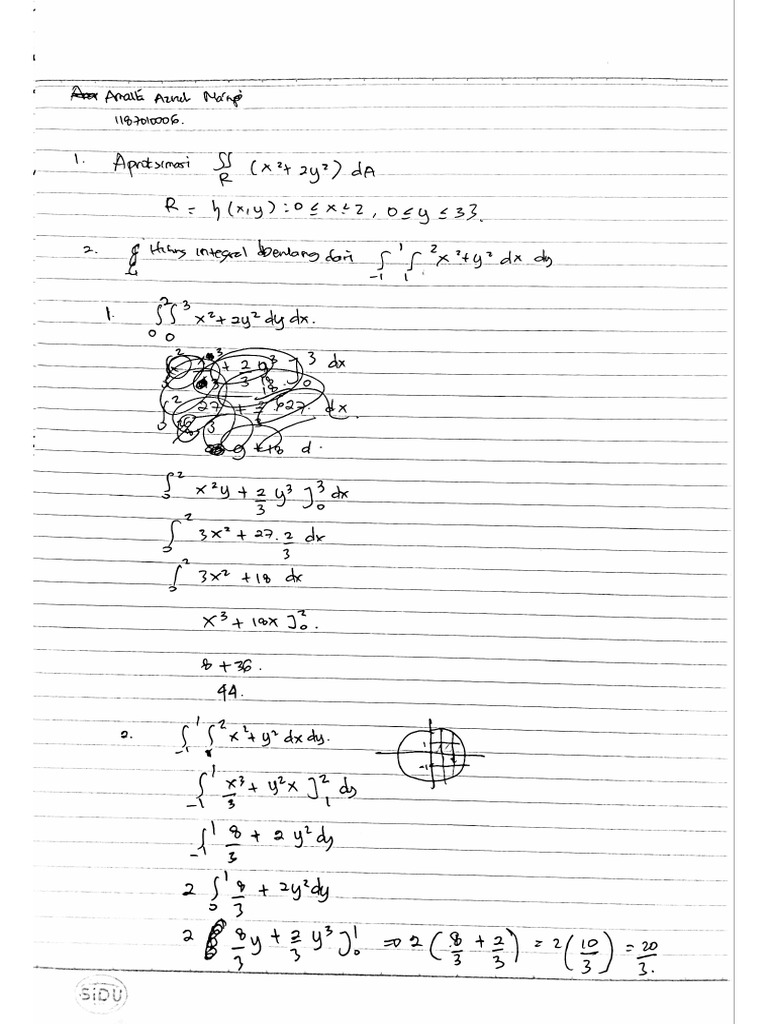 Azrul
1187010006.
1. Aproksimasi ∬_R (x² + 2y²) dA
R = {(x,y) : 0 ≤ x ≤ 2, 0 ≤ y ≤ 3}.
2. Hitung integral berulang dari ∫_{-1}^{1} ∫_{1}^{2} x² + y² dx dy
1. ∫_0^2 ∫_0^3 x² + 2y² dy dx.
∫_0^2 x²y + 2/3 y³ ]_0^3 dx
∫_0^2 3x² + 27 . 2/3 dx
∫_0^2 3x² + 18 dx
x³ + 18x ]_0^2 .
8 + 36.
44.
2. ∫_{-1}^{1} ∫^2 x² + y² dx dy.
1
-1
∫_{-1}^{1} x³/3 + y²x ]_1^2 dy
∫_{-1}^{1} 8/3 + 2 y² dy
2 ∫_0^1 8/3 + 2y² dy
2 8/3 y + 2/3 y³ ]_0^1 => 2 (8/3 + 2/3) = 2 (10/3) = 20/3.
SiDU